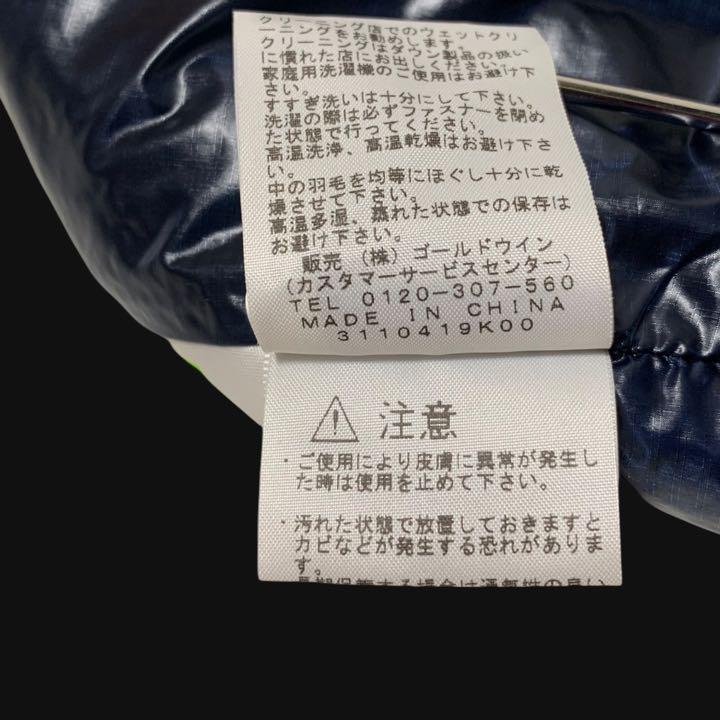 クリーニング店でのウェットクリ
ーニングをお勧めします。
クリーニングはダウン製品の扱い
に慣れた店にお出しください。
家庭用洗濯機のご使用はお避け下
さい。
すすぎ洗いは十分にして下さい。
洗濯の際は必ずファスナーを閉め
た状態で行ってください。
高温洗浄、高温乾燥はお避け下さ
い。
中の羽毛を均等にほぐし十分に乾
燥させて下さい。
高温多湿、蒸れた状態での保存は
お避け下さい。
販売 (株) ゴールドウイン
(カスタマーサービスセンター)
TEL 0120-307-560
MADE IN CHINA
3110419K00
注意
・ご使用により皮膚に異常が発生し
た時は使用を止めて下さい。
・汚れた状態で放置しておきますと
カビなどが発生する恐れがありま
す。
長期保管する場合は通気性の良い